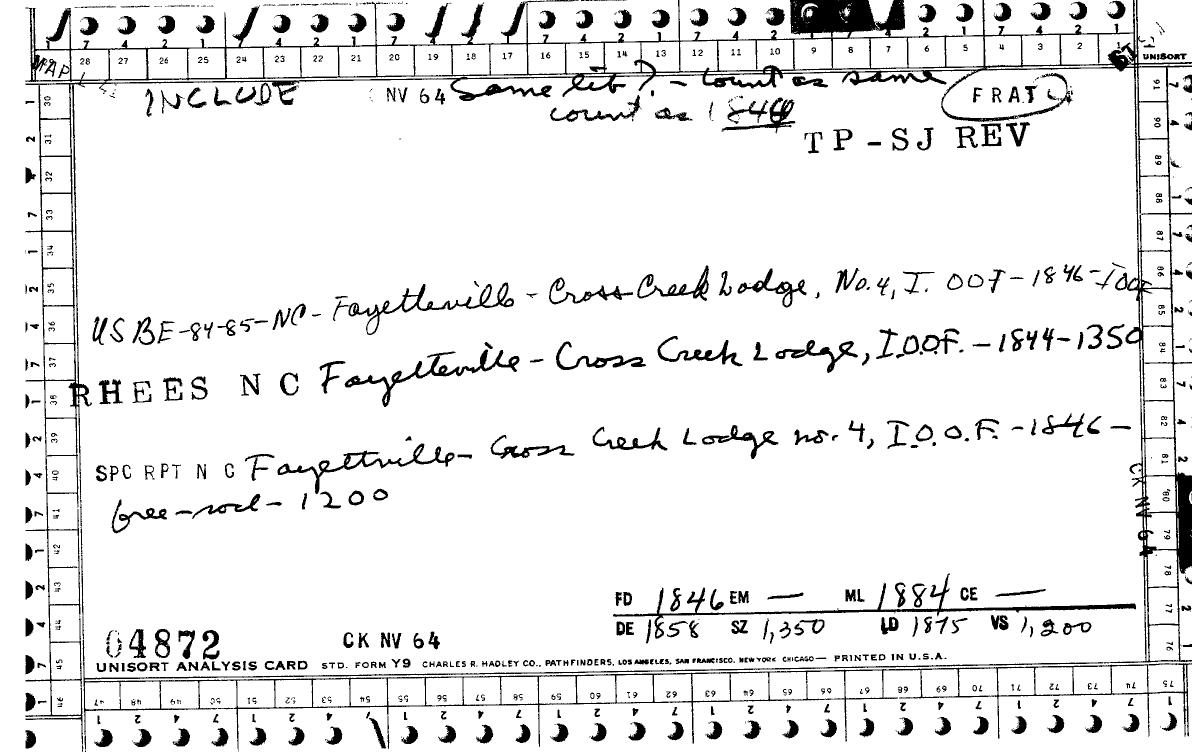 7 4 2 1 7 4 2 1 7 4 2 1 7 4 2 1 7 4 2 1 7 4 2 1
28 27 26 25 24 23 22 21 20 19 18 17 16 15 14 13 12 11 10 9 8 7 6 5 4 3 2 1 UNISORT
MAP
INCLUDE NV 64 Same lib? - Count as same FRAT
count as 184
TP-SJ REV
USBE-84-85-NC-Fayetteville-Cross Creek Lodge, No. 4, I. OOF-1846-IOOF
RHEES NC Fayetteville-Cross Creek Lodge, I.O.O.F.-1844-1350
SPC RPT N C Fayettville-Cross Creek Lodge no. 4, I.O.O.F.-1846-
free-socl-1200
CK NV 64
FD 1846 EM — ML 1884 CE —
DE 1858 SZ 1,350 LD 1875 VS 1,200
04872 CK NV 64
UNISORT ANALYSIS CARD STD. FORM Y9 CHARLES R. HADLEY CO., PATHFINDERS, LOS ANGELES, SAN FRANCISCO, NEW YORK CHICAGO— PRINTED IN U.S.A.
30 31 32 33 34 35 36 37 38 39 40 41 42 43 44 45 46
91 90 89 88 87 86 85 84 83 82 81 80 79 78 77 76
47 48 49 50 51 52 53 54 55 56 57 58 59 60 61 62 63 64 65 66 67 68 69 70 71 72 73 74 75